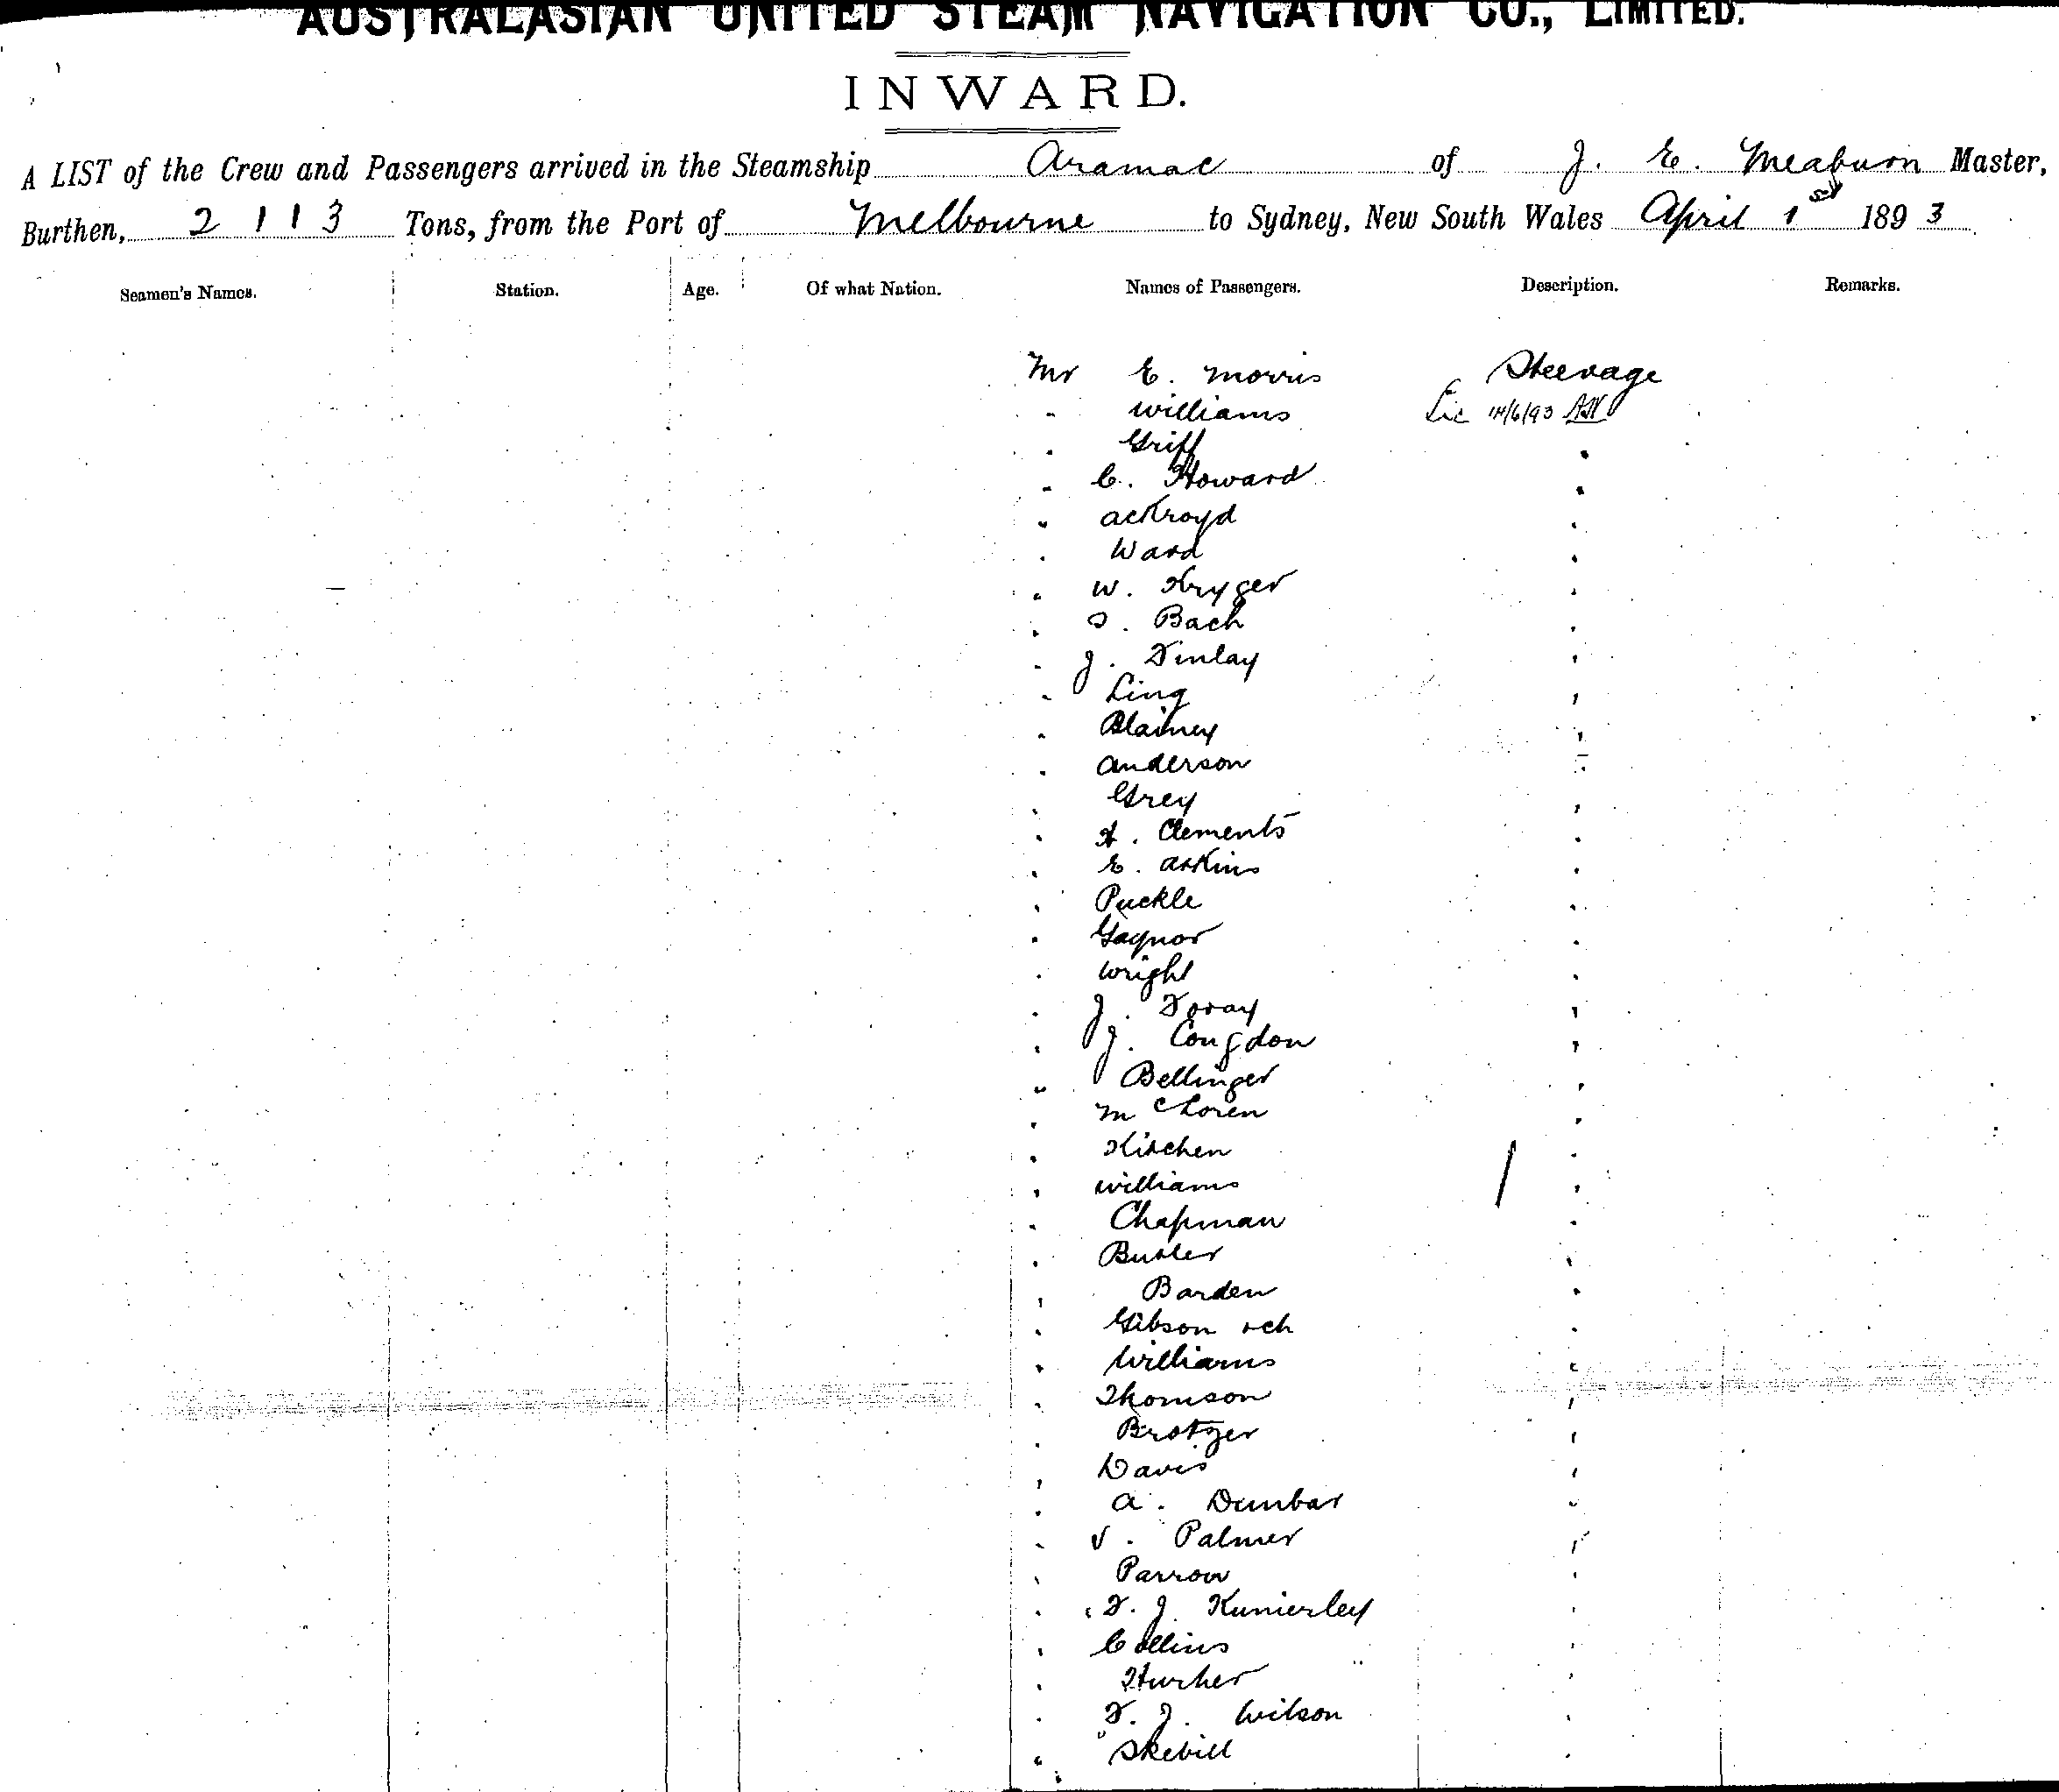 AUSTRALASIAN UNITED STEAM NAVIGATION CO., LIMITED.
INWARD.
A LIST of the Crew and Passengers arrived in the Steamship Aramac of J. E. Meaburn Master,
Burthen, 2113 Tons, from the Port of Melbourne to Sydney, New South Wales April 1st 1893
Seamen's Names. Station. Age. Of what Nation. Names of Passengers. Description. Remarks.
Mr E. Morris Steerage
" Williams 14/6/93
" Griff "
" C. Howard "
" Ackroyd "
" Ward "
" W. Kryger "
" S. Bach "
" J. Finlay "
" Ling "
" Blainey "
" Anderson "
" Grey "
" A. Clements "
" E. Askins "
" Puckle "
" Gaynor "
" Wright "
" J. Foray "
" J. Congdon "
" Bellinger "
" McLoren "
" Kitchen "
" Williams "
" Chapman "
" Butler "
" Barden "
" Gibson "
" Williams "
" Thomson "
" Brotzer "
" Davis "
" A. Dunbar "
" V. Palmer "
" Parrow "
" F. J. Kunierley "
" Collins "
" Hurher "
" F. J. Wilson "
" Skebill "